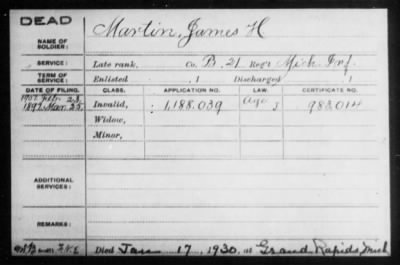 DEAD
NAME OF SOLDIER: Martin, James H
SERVICE: Late rank, Co. B, 21 Reg't Mich. Inf.
TERM OF SERVICE: Enlisted , 1 Discharged , 1
DATE OF FILING. CLASS. APPLICATION NO. LAW. CERTIFICATE NO.
1907 Feb. 23
1897 Mar. 25 Invalid, 1,188.039 Age 988.014
Widow,
Minor,
ADDITIONAL SERVICES:
REMARKS:
Died Jan 17, 1930, at Grand Rapids Mich